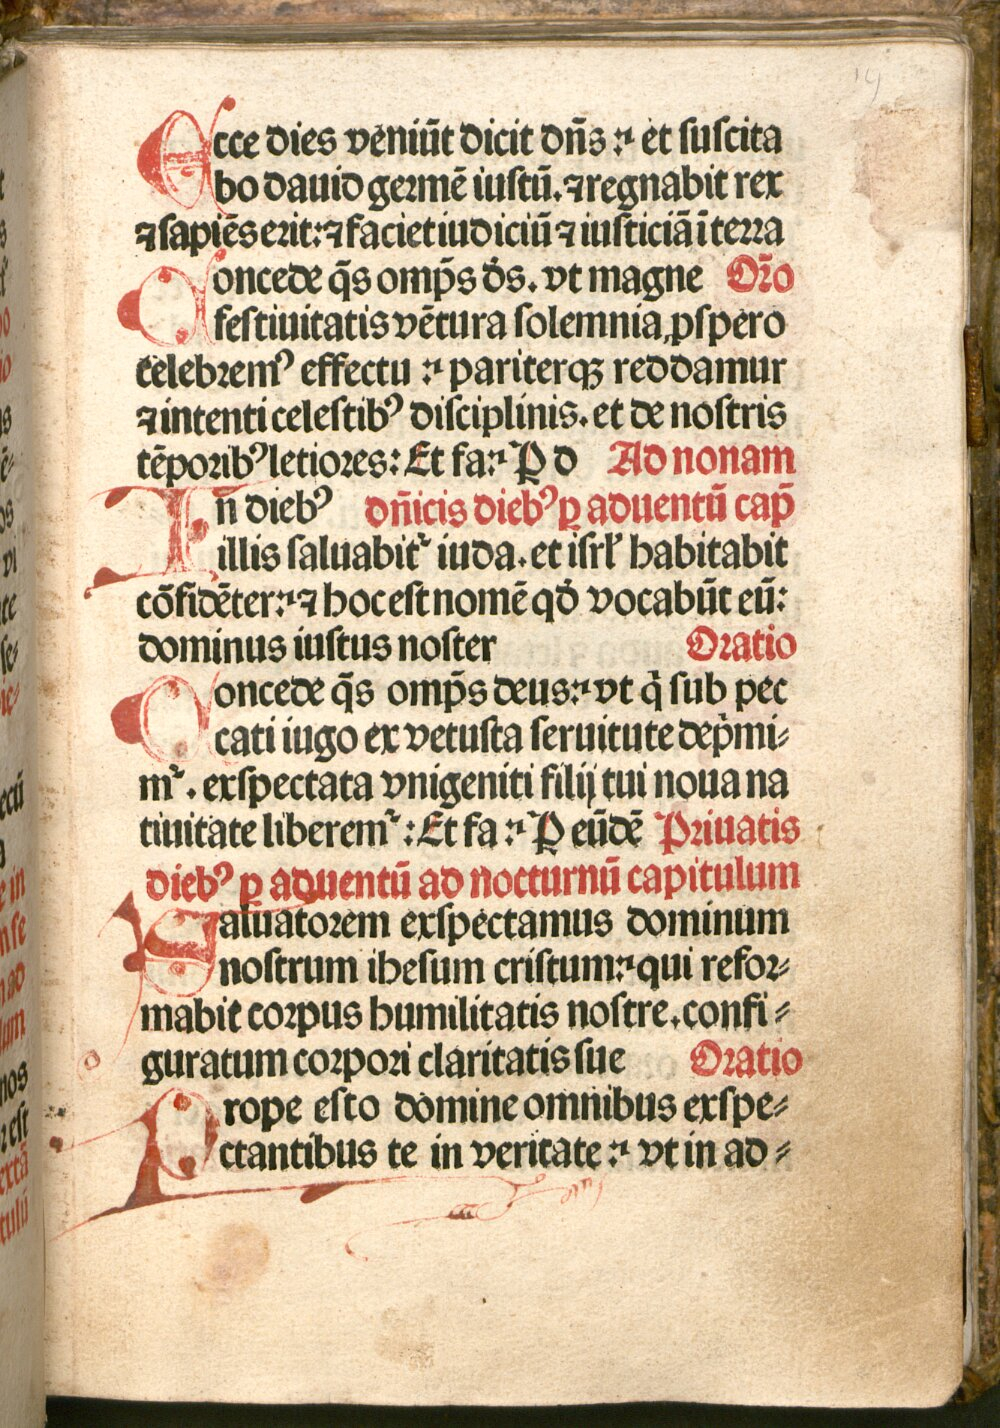 14
Ecce dies veniūt dicit dn̄s : et suscita
bo dauid germē iustū. ⁊ regnabit rex
⁊ sapiēs erit: ⁊ faciet iudiciū ⁊ iusticiā ī terra
Concede q̄s omp̄s ds̄. vt magne Orō
festiuitatis vētura solemnia, ꝓspero
celebremꝰ effectu : pariterqꝫ reddamur
⁊ intenti celestibꝰ disciplinis. et de nostris
tēporibꝰ letiores: Et fa: Ꝑ d Ad nonam
In diebꝰ dn̄icis diebꝰ ꝑ aduentū cap̄
illis saluabit᷑ iuda. et isrl̄ habitabit
cōfidēter: ⁊ hoc est nomē qd̄ vocabūt eū:
dominus iustus noster Oratio
Concede q̄s omp̄s deus: vt q̄ sub pec
cati iugo ex vetusta seruitute dep̄mi⸗
m᷑. exspectata vnigeniti filij tui noua na
tiuitate liberem᷑: Et fa : Ꝑ eūdē Priuatis
diebꝰ ꝑ aduentū ad nocturnū capitulum
Saluatorem exspectamus dominum
nostrum ihesum cristum: qui refor⸗
mabit corpus humilitatis nostre. confi⸗
guratum corpori claritatis sue Oratio
Prope esto domine omnibus exspe⸗
ctantibus te in veritate : vt in ad⸗